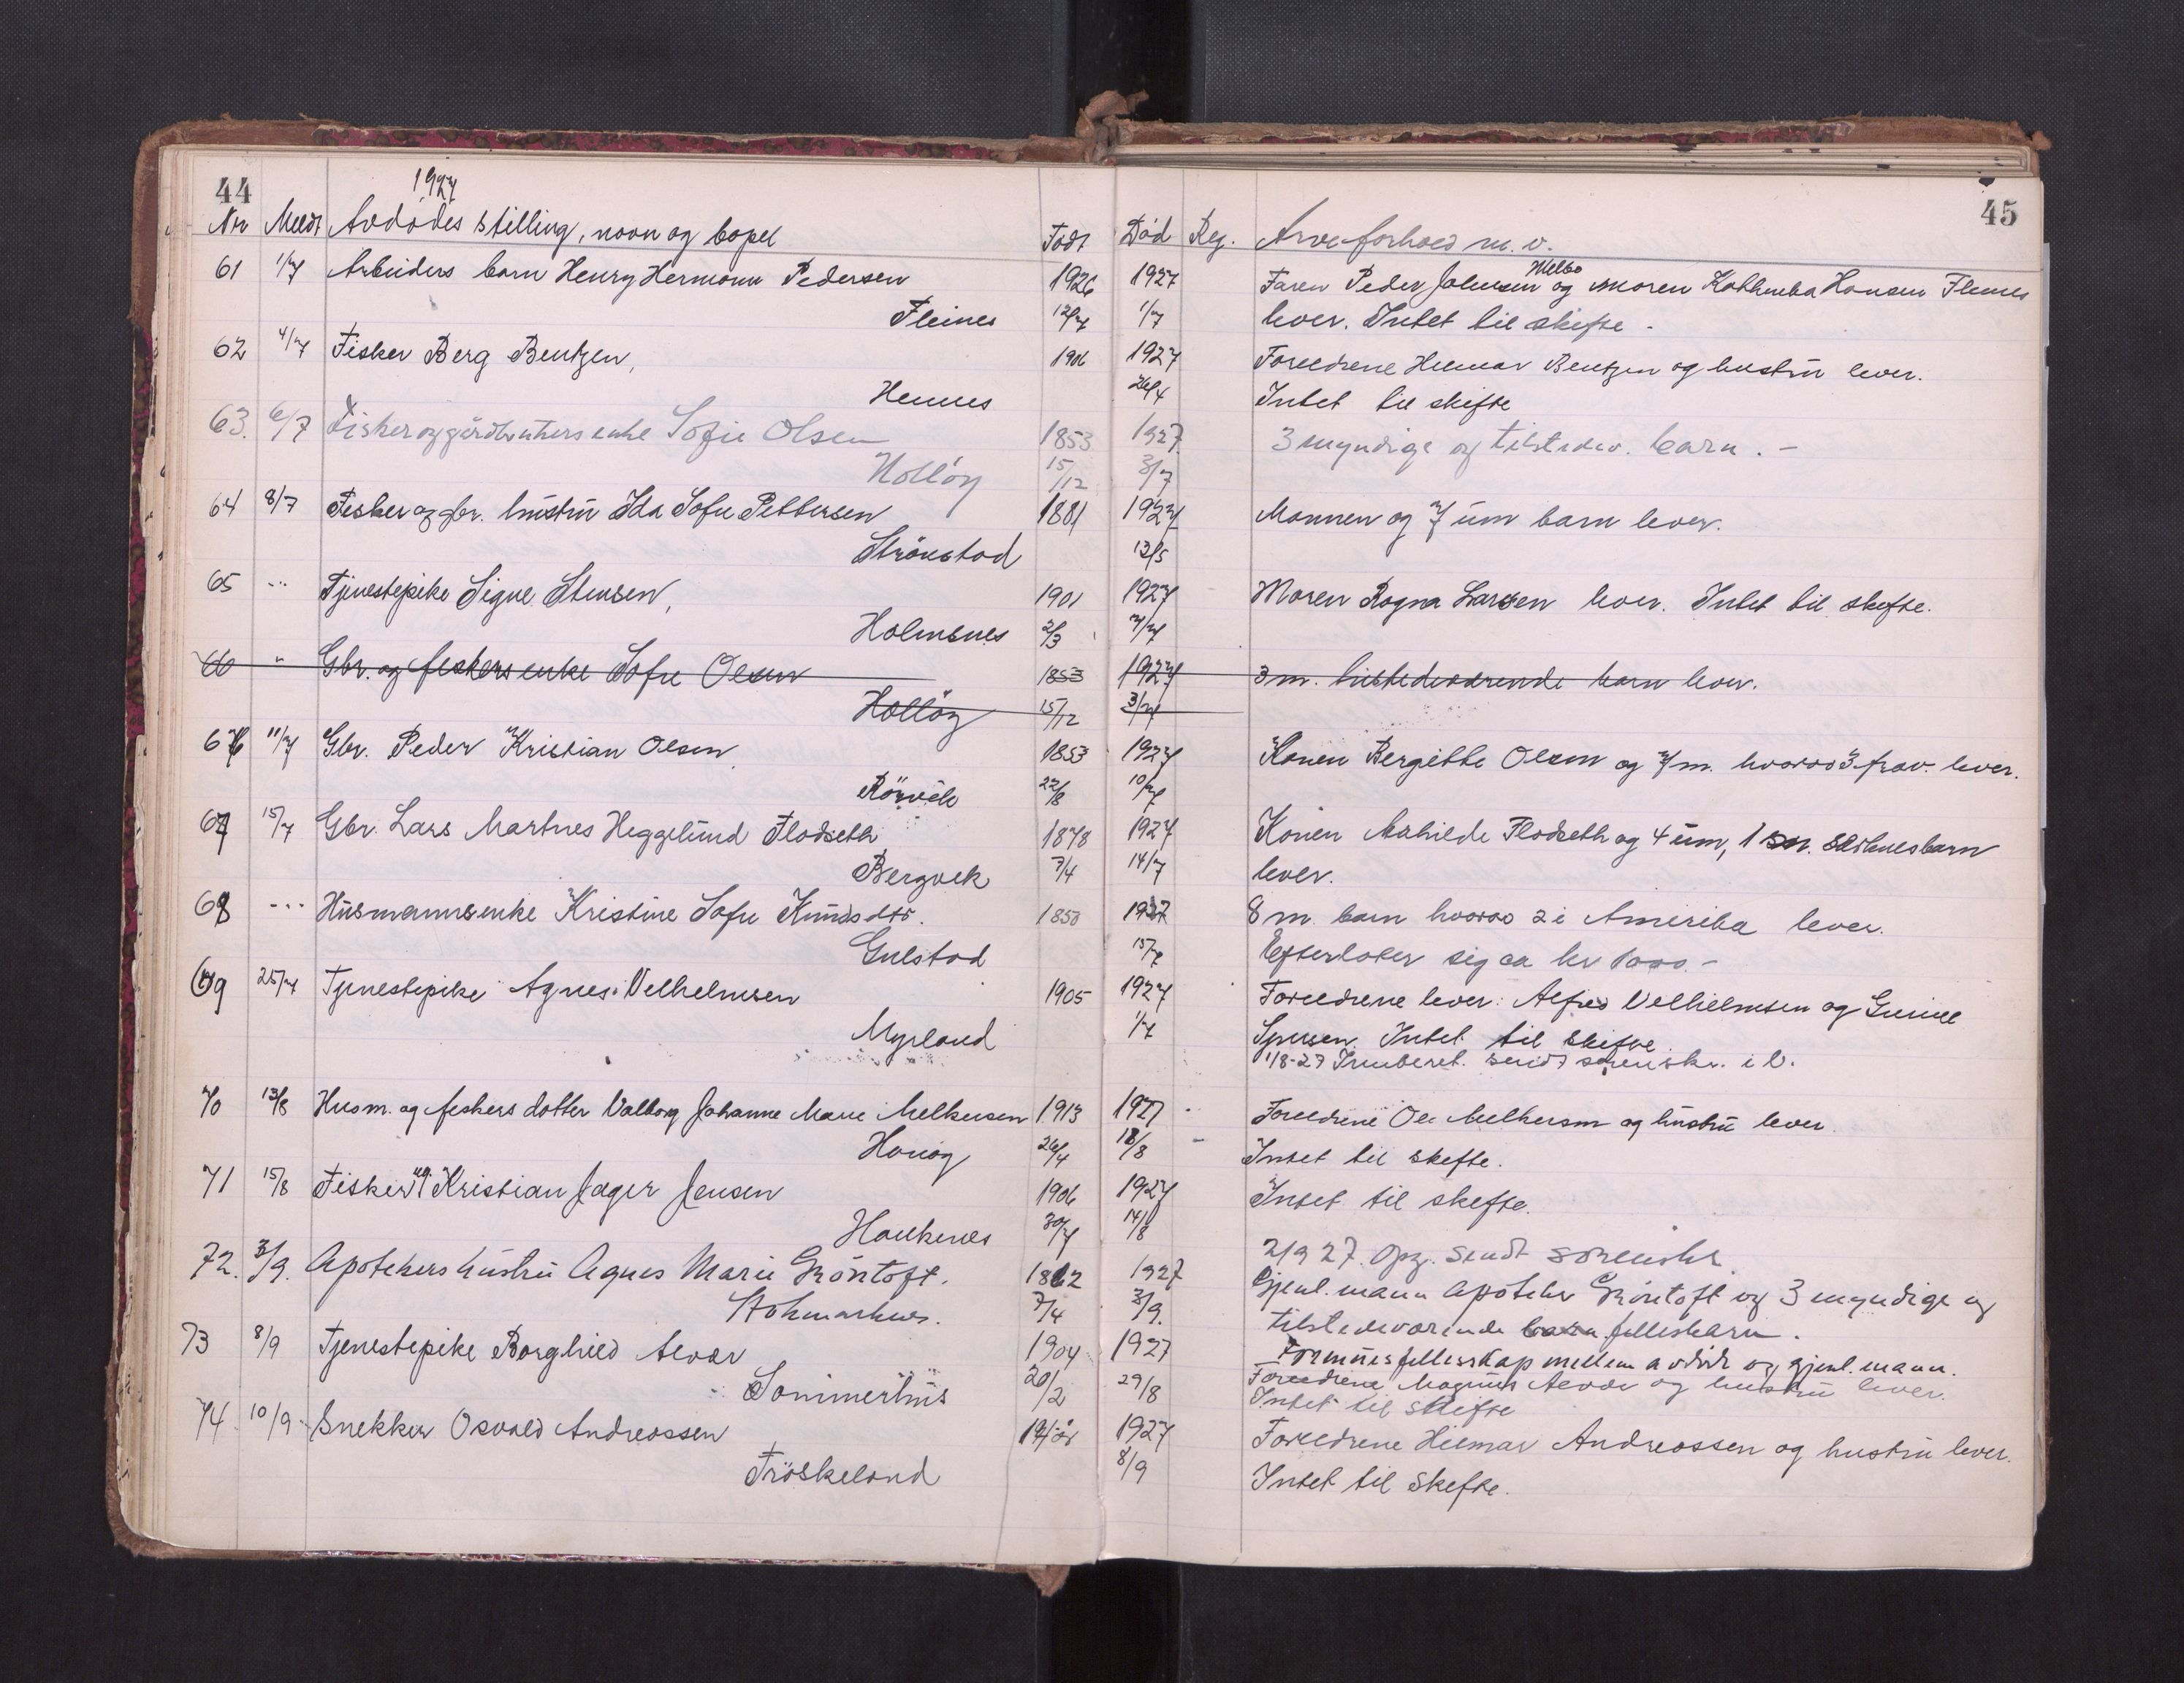 44
1927
45
Nr Meldt Avdødes stilling, navn og bopel Født Død Reg. Arveforhold m. v.
61 1/7 Arbeiders barn Henry Hermann Pedersen 1926 1927 Faren Peder Johnsen Melbo og moren Kathinka Hansen Fleines
Fleines 12/7 1/7 lever. Intet til skifte -
62 4/7 Fisker Berg Bentzen, 1906 1927 Foreldrene Hilmar Bentzen og hustru lever.
Hennes 26/4 Intet til skifte
63. 6/7 Fisker og gårdbrukers enke Sofie Olsen 1853 1927 3 myndige og tilstedev. barn. -
Holløy 15/12 3/7
64 8/7 Fisker og gbr. hustru Ida Sofie Pettersen 1881 1927 Mannen og 7 um barn lever.
Strønstad 13/5
65 ... Tjenestepike Signe Stensen, 1901 1927 Moren Ragna Larsen lever. Intet til skifte.
Holmsnes 2/3 7/7
66 " Gbr. og fiskers enke Sofie Olsen 1853 1927 3 m. tilstedeværende barn lever.
Holløy 15/12 3/7
66 11/7 Gbr. Peder Kristian Olsen 1853 1927 Konen Bergitte Olsen og 7 m. hvorav 3 frav. lever.
Rørvik 22/8 10/7
67 15/7 Gbr. Lars Martnes Heggelund Flodseth 1878 1927 Konen Mathilde Flodseth og 4 um, 1 m. særkulsbarn
Bergvik 7/4 14/7 lever.
68 ... Husmannsenke Kristine Sofie Knudsdtr. 1850 1927 8 m. barn hvorav 2 i Amerika lever.
Gulstad 15/7 Efterlater sig ca kr 1000.-
69 25/7 Tjenestepike Agnes Velhelmsen 1905 1927 Foreldrene lever: Alfred Velhelmsen og
Myrland 1/7 Intet til skifte
1/8-27 sendt sorenskr. i V.
70 13/8 Husm. og fiskers datter Valborg Johanne Marie Melkersen 1913 1927 Foreldrene Ole Melkersen og hustru lever.
Hanøy 26/4 12/8 Intet til skifte.
71 15/8 Fisker ug. Kristian Jager Jensen 1906 1927 Intet til skifte.
Haukenes 30/7 14/8
72. 3/9. Apotekers hustru Agnes Marie Gröntoft. 1862 1927 2/9 27. Opg. sendt sorenskr.
Stokmarknes. 7/4 3/9. Gjenl. mann apoteker Gröntoft og 3 myndige og
tilstedeværende barn fellesbarn.
Formuesfellesskap mellem avdøde og gjenl. mann.
73 8/9 Tjenestepike Borghild Alvær 1904 1927 Foreldrene Magnus Alvær og hustru lever.
Sommerhus 20/2 29/8 Intet til skifte
74 10/9 Snekker Osvald Andreassen 19 år 1927 Foreldrene Hilmar Andreassen og hustru lever.
Frøskeland 8/9 Intet til skifte.